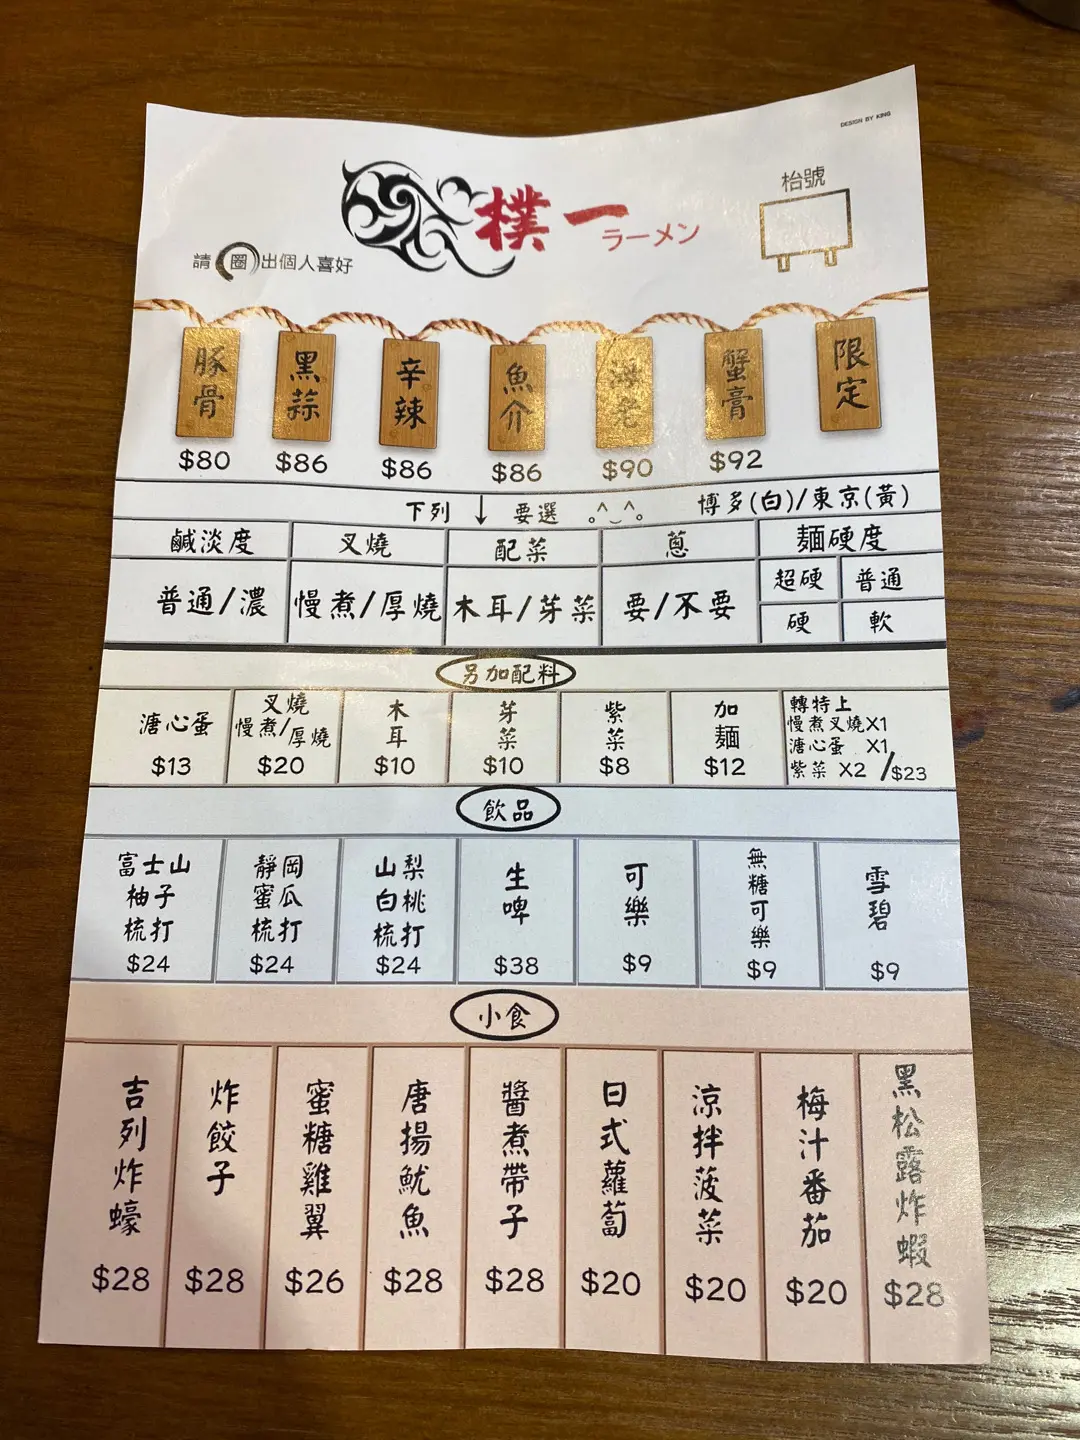 DESIGN BY KING
樸一
ラーメン
枱號
請圈出個人喜好
豚骨 黑蒜 辛辣 魚介 海老 蟹膏 限定
$80 $86 $86 $86 $90 $92
下列 ↓ 要選 。^‿^。 博多(白)/東京(黃)
鹹淡度 叉燒 配菜 蔥 麵硬度
普通/濃 慢煮/厚燒 木耳/芽菜 要/不要
超硬 普通
硬 軟
另加配料
溏心蛋 $13
叉燒
慢煮/厚燒
$20
木耳 $10
芽菜 $10
紫菜 $8
加麵 $12
轉特上
慢煮叉燒X1
溏心蛋 X1
紫菜 X2 /$23
飲品
富士山
柚子
梳打
$24
靜岡
蜜瓜
梳打
$24
山梨
白桃
梳打
$24
生啤 $38
可樂 $9
無糖可樂 $9
雪碧 $9
小食
吉列炸蠔 $28
炸餃子 $28
蜜糖雞翼 $26
唐揚魷魚 $28
醬煮帶子 $28
日式蘿蔔 $20
涼拌菠菜 $20
梅汁番茄 $20
黑松露炸蝦 $28